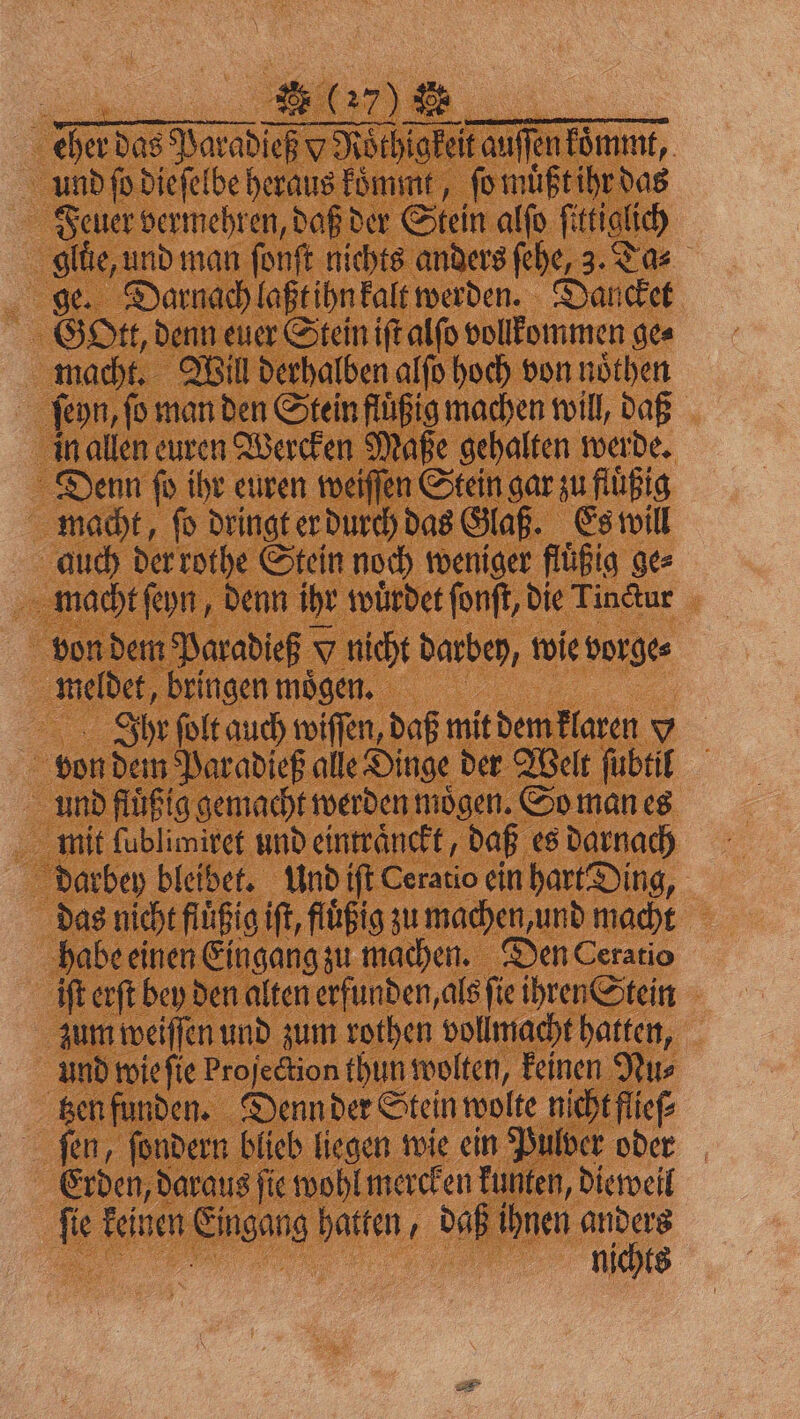 ❁ (27) ❁
eher das Paradieß ▽ Röthigkeit auſſen kömmt,
und ſo dieſelbe heraus kömmt, ſo müßt ihr das
Feuer vermehren, daß der Stein alſo ſittiglich
glüe, und man ſonſt nichts anders ſehe, 3. Ta⸗
ge. Darnach laßt ihn kalt werden. Dancket
GOtt, denn euer Stein iſt alſo vollkommen ge⸗
macht. Will derhalben alſo hoch von nöthen
ſeyn, ſo man den Stein flüßig machen will, daß
in allen euren Wercken Maße gehalten werde.
Denn ſo ihr euren weiſſen Stein gar zu flüßig
macht, ſo dringt er durch das Glaß. Es will
auch der rothe Stein noch weniger flüßig ge⸗
macht ſeyn, denn ihr würdet ſonſt, die Tinctur
von dem Paradieß ▽ nicht darbey, wie vorge⸗
meldet, bringen mögen.
Ihr ſolt auch wiſſen, daß mit dem klaren ▽
von dem Paradieß alle Dinge der Welt ſubtil
und flüßig gemacht werden mögen. So man es
mit ſublimiret und eintränckt, daß es darnach
darbey bleibet. Und iſt Ceratio ein hart Ding,
das nicht flüßig iſt, flüßig zu machen, und macht
habe einen Eingang zu machen. Den Ceratio
iſt erſt bey den alten erfunden, als ſie ihren Stein
zum weiſſen und zum rothen vollmacht hatten,
und wie ſie Projection thun wolten, keinen Nu⸗
tzen funden. Denn der Stein wolte nicht flieſ⸗
ſen, ſondern blieb liegen wie ein Pulver oder
Erden, daraus ſie wohl mercken kunten, dieweil
ſie keinen Eingang hatten, daß ihnen anders
nichts